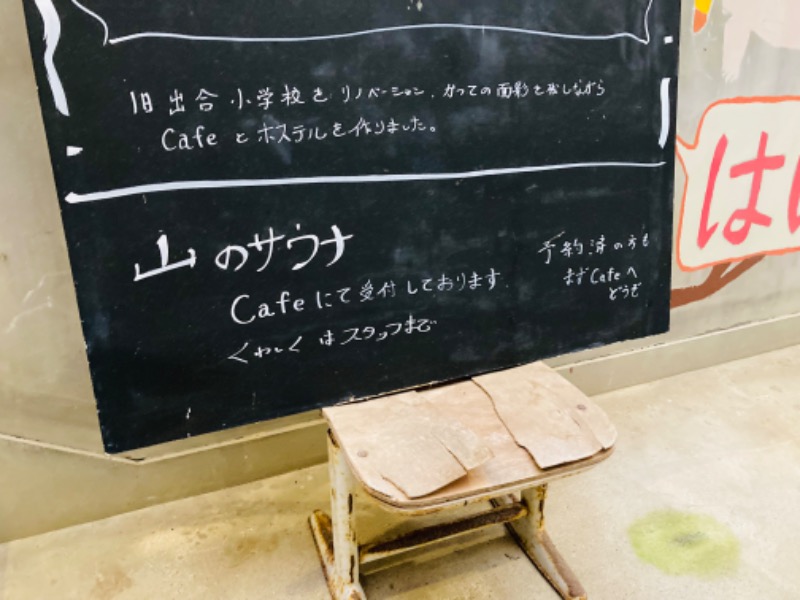 旧出合小学校をリノベーション、かつての面影を残しながら
Cafeとホステルを作りました。
山のサウナ
Cafeにて受付しております。
くわしくはスタッフまで
予約済の方も
まずCafeへ
どうぞ
は